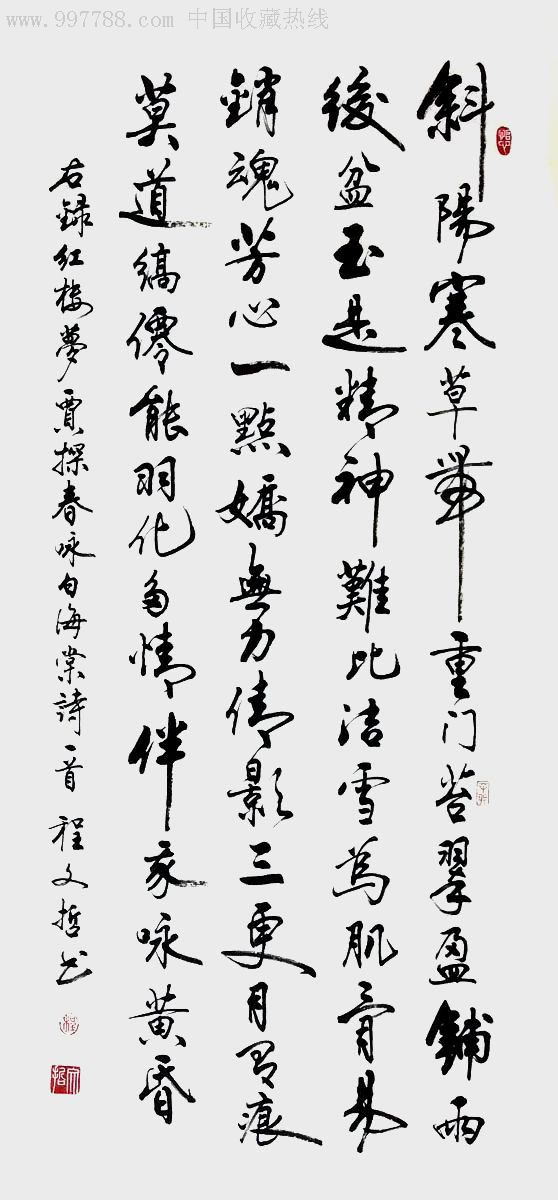 www.997788.com 中国收藏热线
斜陽寒草帶重门苔翠盈鋪雨
後盆玉是精神難比洁雪為肌骨易
銷魂芳心一點嬌無力倩影三更月有痕
莫道縞僊能羽化多情伴我咏黄昏
右録红楼夢賈探春咏白海棠詩一首 程文哲书
程
文哲